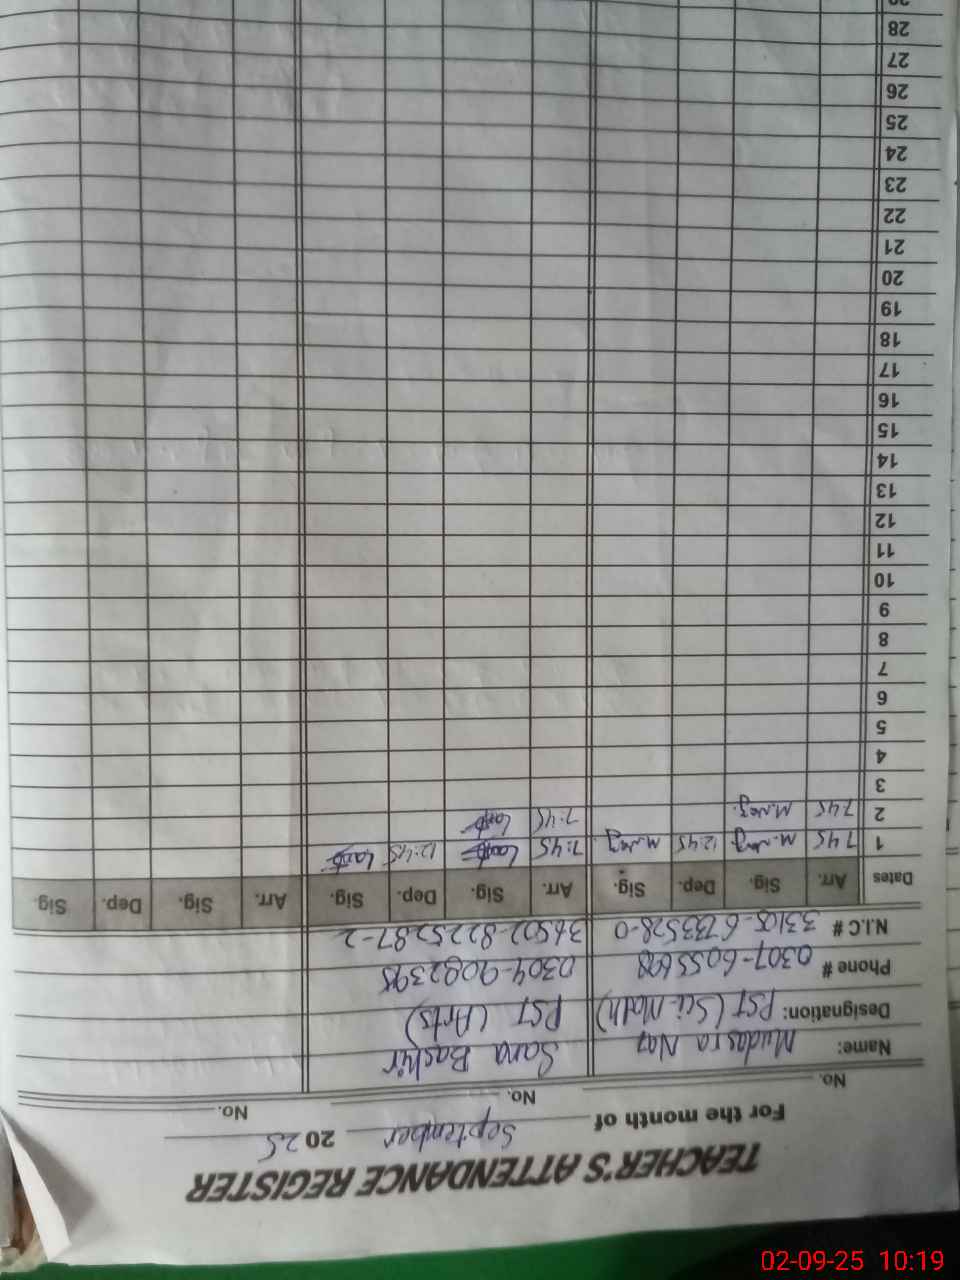 TEACHER'S ATTENDANCE REGISTER
For the month of September 2025
No. No. No.
Name: Mudasra Naz Sara Bashir
Designation: PST (Sci-Math) PST (Arts)
Phone # 0307-6055698 0304-9082398
N.I.C # 33105-6733528-0 36502-8225287-2
Dates Arr. Sig. Dep. Sig. Arr. Sig. Dep. Sig. Arr. Sig. Dep. Sig.
1 7:45 M.Naz 12:45 M.Naz 7:45 12:45
2 7:45 M.Naz. 7:45
3
4
5
6
7
8
9
10
11
12
13
14
15
16
17
18
19
20
21
22
23
24
25
26
27
28
02-09-25 10:19